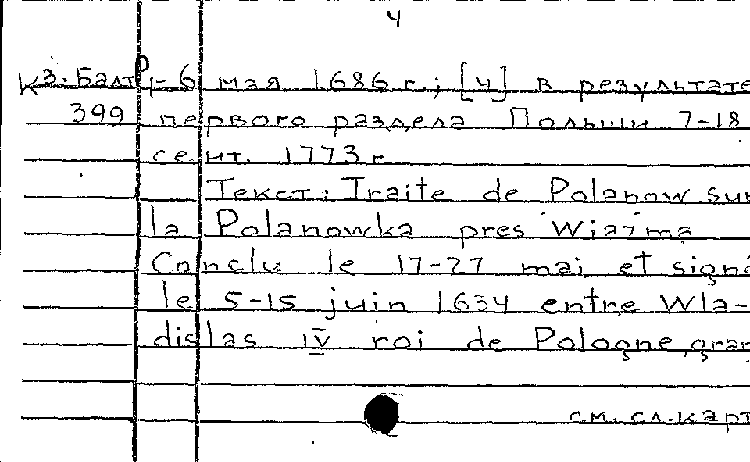 4
КЗ. Балт Р 1-6 мая 1686 г.; [4] в результате
399 первого раздела Польши 7-18
сент. 1773 г
Текст: Traite de Polanow sur
la Polanowka pres Wiazma
Conclu le 17-27 mai et signé
le 5-15 juin 1634 entre Wla-
dislas IV roi de Pologne, gran
см. сл. карт